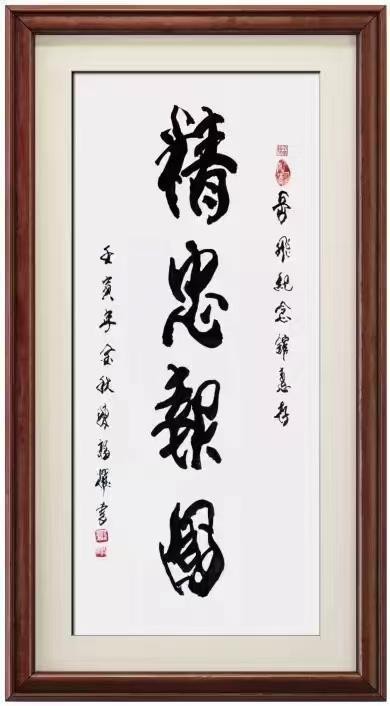 岳飛紀念館惠存
精忠報國
壬寅年金秋書